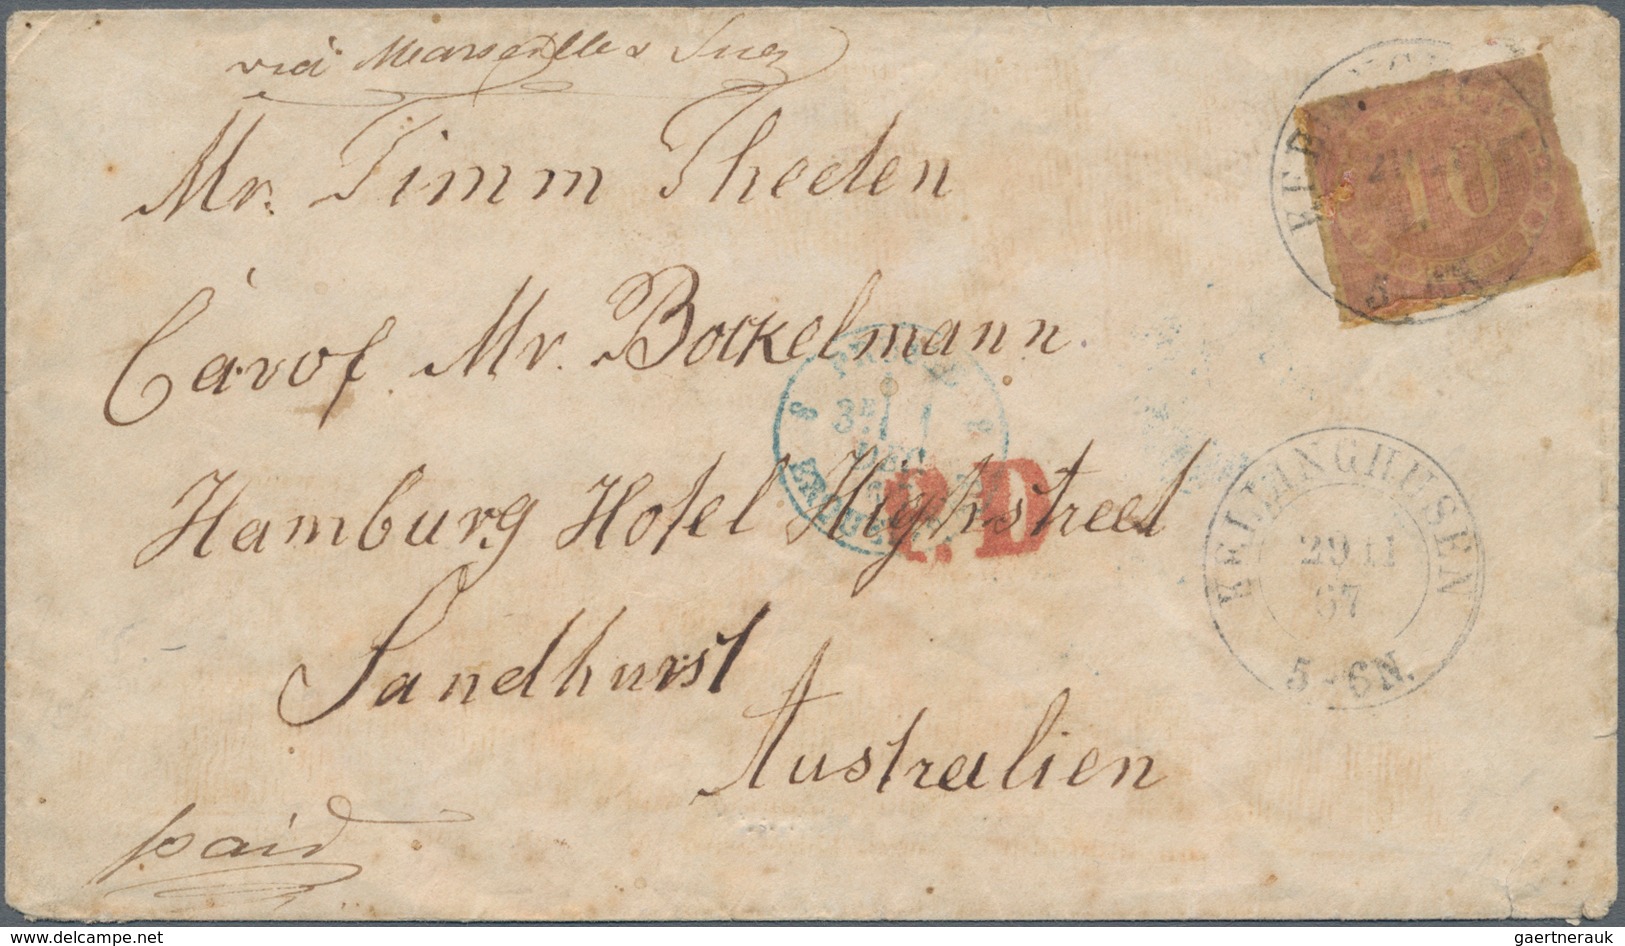 via Marseille & Suez
Mr. Timm Theden
Carof Mr. Bockelmann.
Hamburg Hotel Highstreet
Sandhurst
Australien
paid
10
5-6N
3E 1
DEC
P.D
KELLINGHUSEN
29 11
67
5-6N.
www.delcampe.net
gaertnerauk